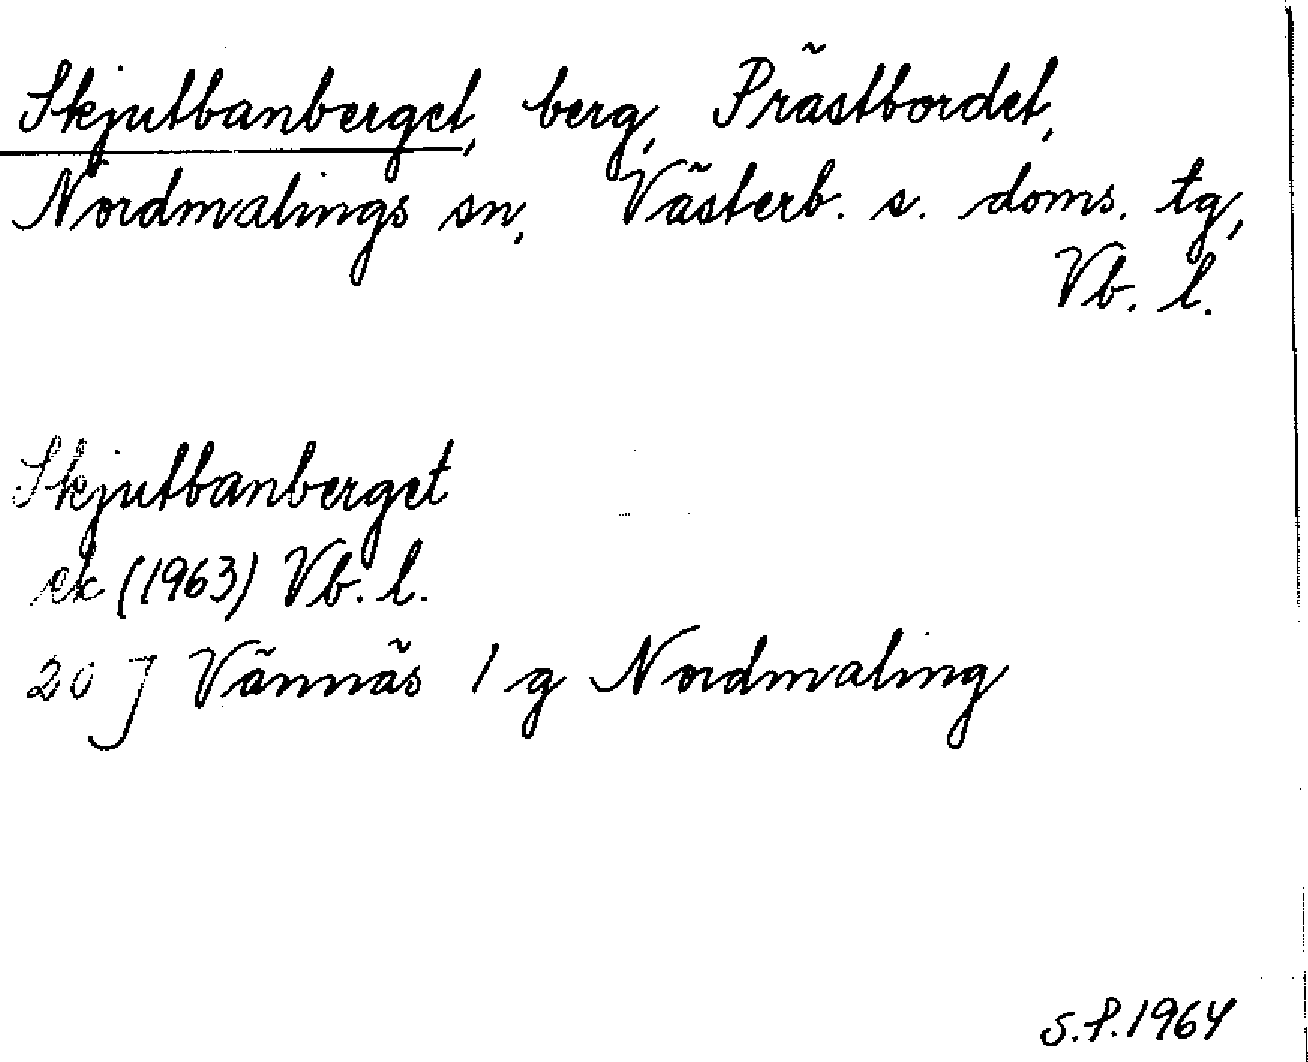 Skjutbanberget, berg, Prästbordet,
Nordmalings sn, Västerb. s. doms. tg,
Vb. l.
Skjutbanberget
ek (1963) Vb. l.
20 J Vännäs 1 g Nordmaling
S.P. 1964